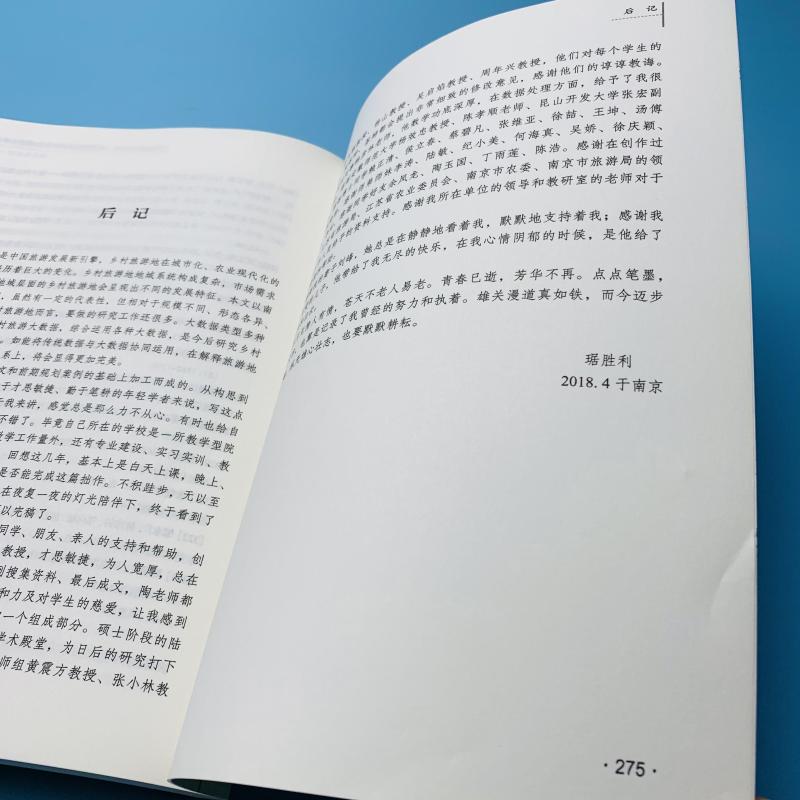 后 记
是中国旅游发展新引擎，乡村旅游地在城市化、农业现代化的
历着巨大的变化。乡村旅游地地域系统构成复杂，市场需求
地域层面的乡村旅游地会呈现出不同的发展特征。本文以南
，虽然有一定的代表性，但相对于规模不同、形态各异、
村旅游地而言，要做的研究工作还很多。大数据类型多种
村旅游大数据，综合运用各种大数据，是今后研究乡村
。如能将传统数据与大数据协同运用，在解释旅游地
系上，将会显得更加完美。
文和前期规划案例的基础上加工而成的。从构思到
于才思敏捷、勤于笔耕的年轻学者来说，写这点
于我来讲，感觉总是那么力不从心。有时也给自
不错了。毕竟自己所在的学校是一所教学型院
学工作量外，还有专业建设、实习实训、教
。回想这几年，基本上是白天上课，晚上、
是否能完成这篇拙作。不积跬步，无以至
在夜复一夜的灯光陪伴下，终于看到了
以完稿了。
同学、朋友、亲人的支持和帮助，创
教授，才思敏捷，为人宽厚，总在
到搜集资料、最后成文，陶老师都
和力及对学生的慈爱，让我感到
一个组成部分。硕士阶段的陆
学术殿堂，为日后的研究打下
师组黄震方教授、张小林教
后 记
山教授、吴启焰教授、周年兴教授，他们对每个学生的
都会提出非常细致的修改意见，感谢他们的谆谆教诲。
老师，他数学功底深厚，在数据处理方面，给予了我很
师范大学杨效忠教授、陈孝顺老师、昆山开发大学张宏副
鲍正清、侯立春、蔡碧凡、张维亚、徐喆、王坤、汤傅
师妹李涛、陆敏、纪小美、何海真、吴娇、徐庆颖、
同学好友会凤龙、陶玉国、丁雨莲、陈浩。感谢在创作过
局、江苏省农业委员会、南京市农委、南京市旅游局的领
予的资料支持。感谢我所在单位的领导和教研室的老师对于
妻子刘峰，她总是在静静地看着我，默默地支持着我；感谢我
儿子，他带给了我无尽的快乐，在我心情阴郁的时候，是他给了
有情，苍天不老人易老。青春已逝，芳华不再。点点笔墨，
是记录了我曾经的努力和执着。雄关漫道真如铁，而今迈步
雄心壮志，也要默默耕耘。
琚胜利
2018.4 于南京
·275·